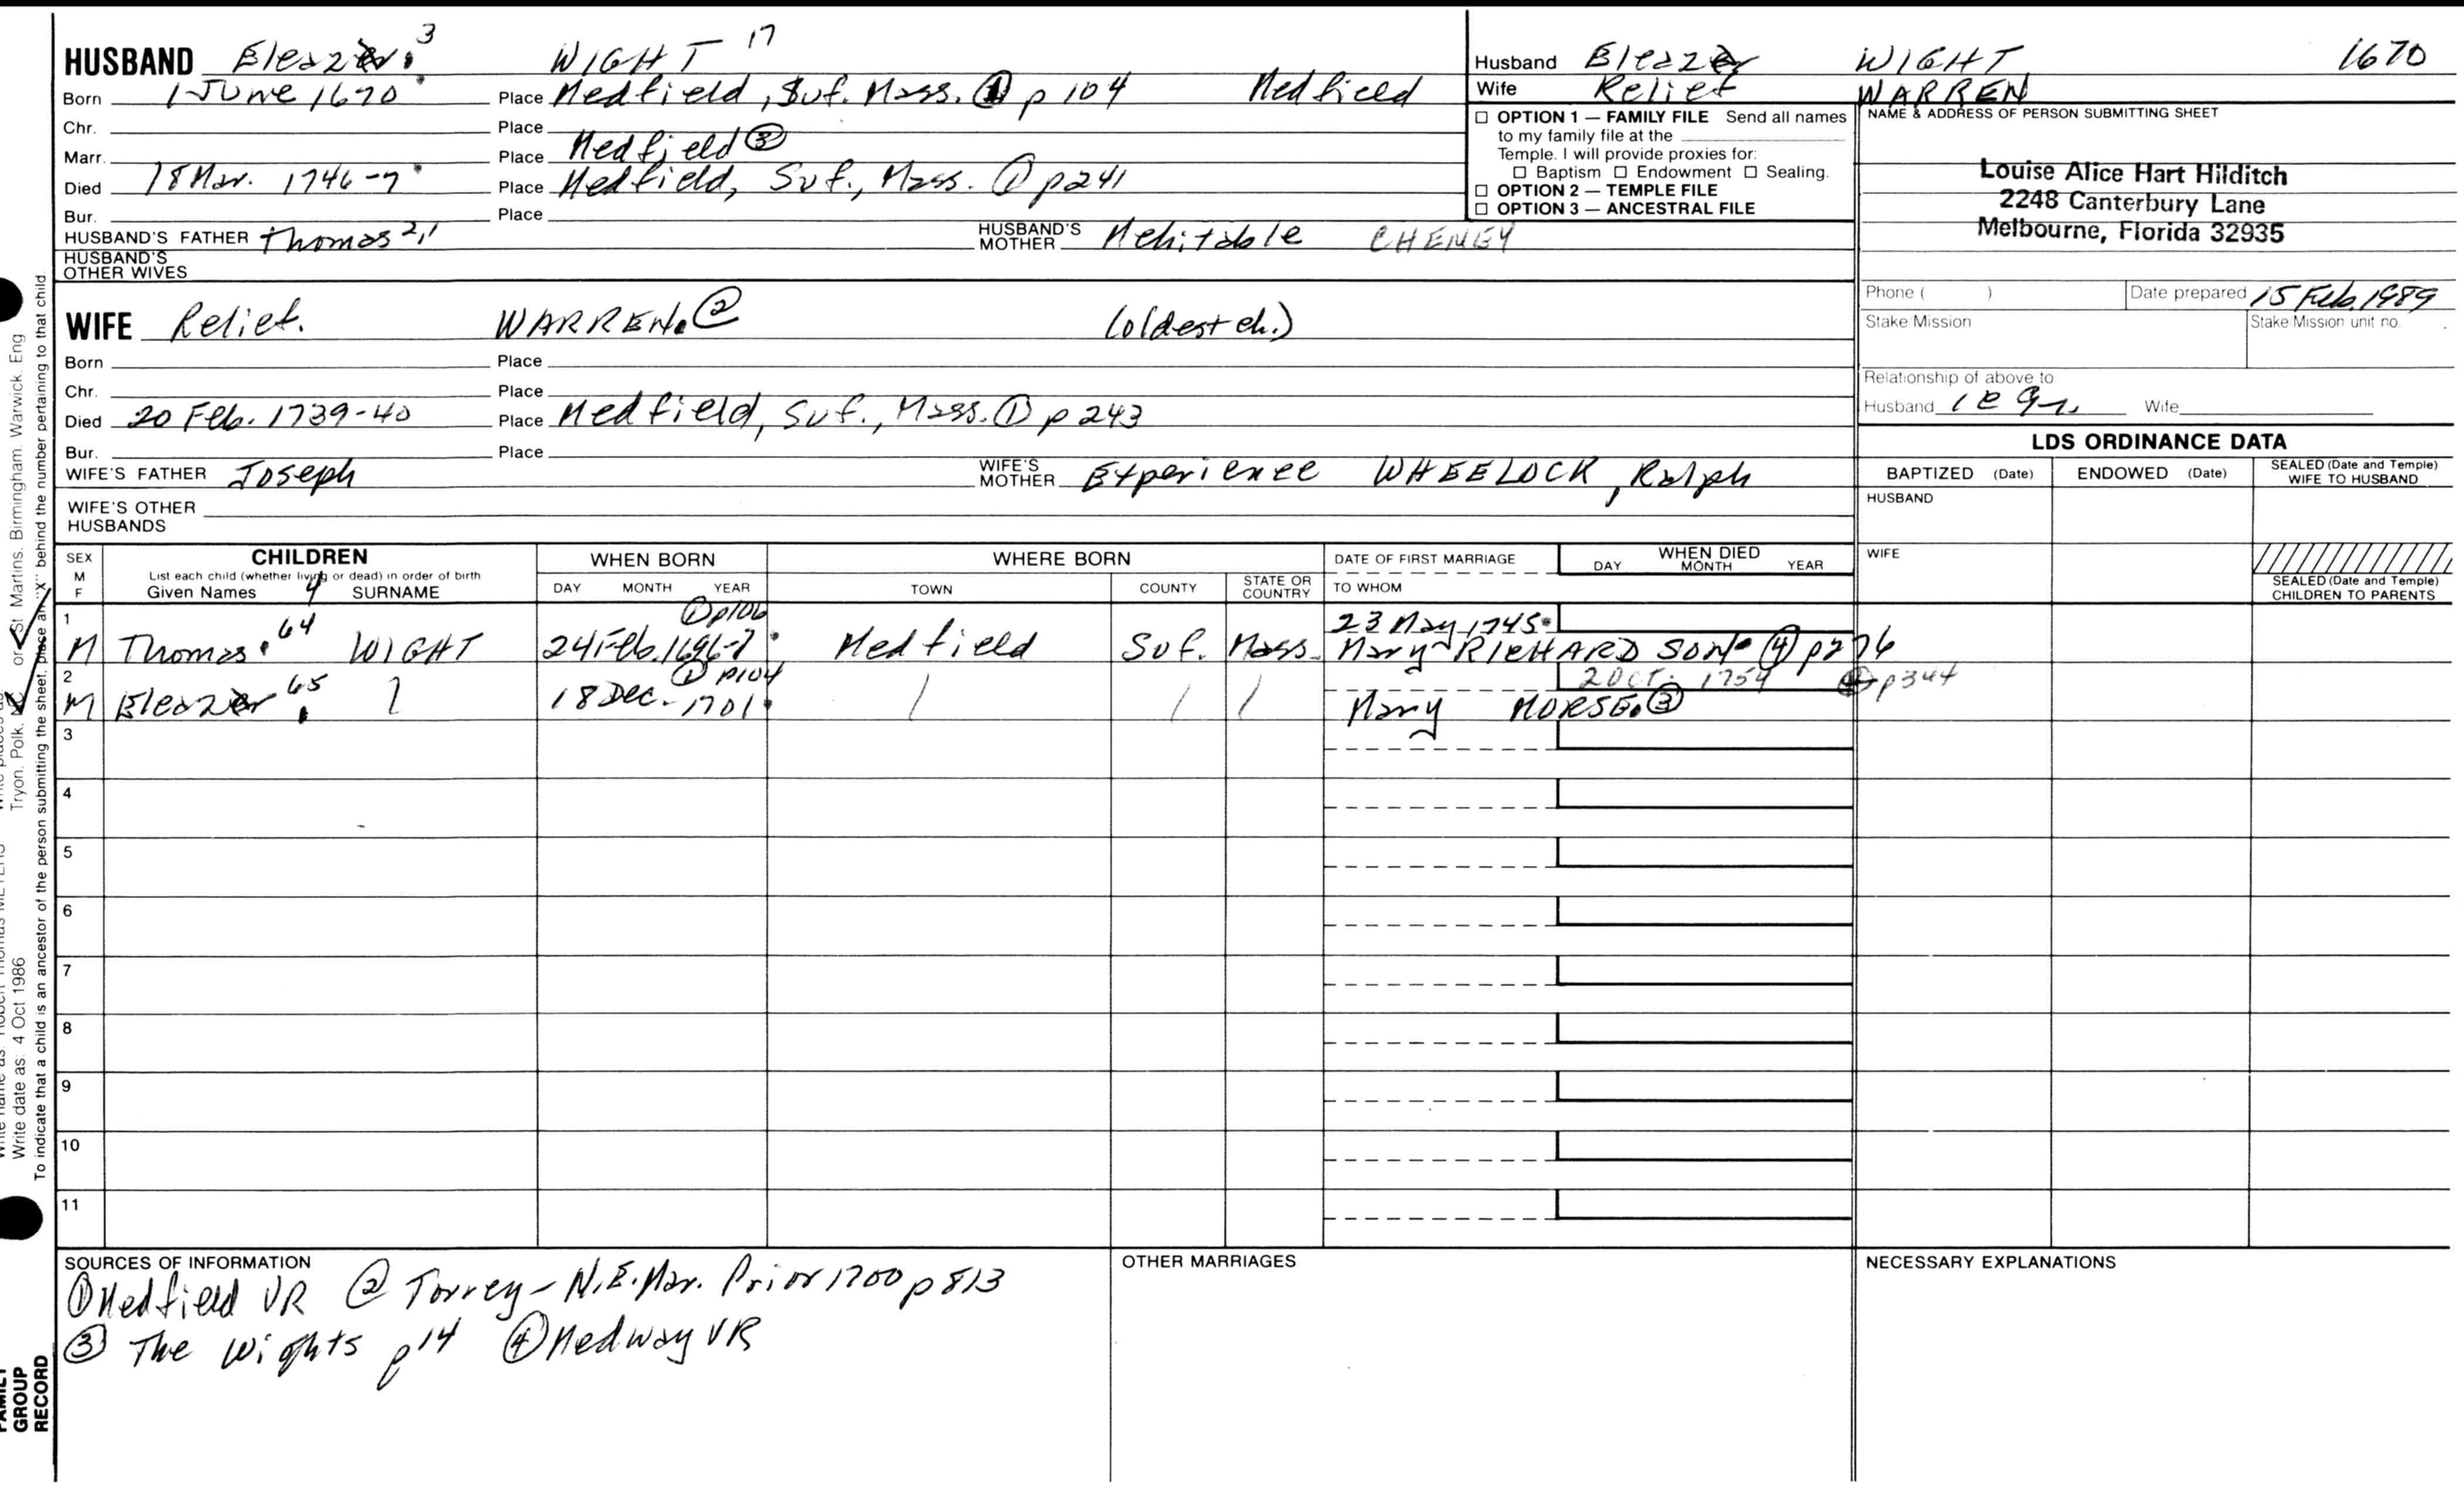 HUSBAND Eleazer 3 WIGHT 17
Born 1 June 1670 Place Medfield, Suf. Mass. ① p 104 Medfield
Chr. Place
Marr. Place Medfield ③
Died 18 Mar. 1746-7 Place Medfield, Suf., Mass. ① p 241
Bur. Place
HUSBAND'S FATHER Thomas 2,1 HUSBAND'S MOTHER Mehitable CHENEY
HUSBAND'S OTHER WIVES
WIFE Relief. WARREN. ② (oldest ch.)
Born Place
Chr. Place
Died 20 Feb. 1739-40 Place Medfield, Suf., Mass. ① p 243
Bur. Place
WIFE'S FATHER Joseph WIFE'S MOTHER Experience WHEELOCK, Ralph
WIFE'S OTHER HUSBANDS
Husband Eleazer WIGHT 1670
Wife Relief WARREN
☐ OPTION 1 — FAMILY FILE Send all names
to my family file at the
Temple. I will provide proxies for:
☐ Baptism ☐ Endowment ☐ Sealing.
☐ OPTION 2 — TEMPLE FILE
☐ OPTION 3 — ANCESTRAL FILE
NAME & ADDRESS OF PERSON SUBMITTING SHEET
Louise Alice Hart Hilditch
2248 Canterbury Lane
Melbourne, Florida 32935
Phone ( ) Date prepared 15 Feb. 1989
Stake Mission Stake Mission unit no.
Relationship of above to
Husband Wife
LDS ORDINANCE DATA
BAPTIZED (Date) ENDOWED (Date) SEALED (Date and Temple) WIFE TO HUSBAND
HUSBAND
WIFE
SEALED (Date and Temple) CHILDREN TO PARENTS
SEX M F CHILDREN WHEN BORN WHERE BORN DATE OF FIRST MARRIAGE WHEN DIED
List each child (whether living or dead) in order of birth
Given Names 4 SURNAME DAY MONTH YEAR TOWN COUNTY STATE OR COUNTRY TO WHOM DAY MONTH YEAR
1 ① p106 23 May 1745
M Thomas 64 WIGHT 24 Feb. 1696-7 Medfield Suf. Mass. Mary RICHARDSON ④ p276
2 ① p104 2 Oct. 1754 p344
M Eleazer 65 18 Dec. 1701 Mary MORSE. ③
3
4
5
6
7
8
9
10
11
SOURCES OF INFORMATION
① Medfield VR ② Torrey - N.E. Mar. Prior 1700 p 813
③ The Wights p 14 ④ Medway VR
OTHER MARRIAGES
NECESSARY EXPLANATIONS
St. Martins. Birmingham. Warwick. Eng
Tryon. Polk.
Write date as: 4 Oct 1986
To indicate that a child is an ancestor of the person submitting the sheet, place an "X" behind the number pertaining to that child
FAMILY
GROUP
RECORD